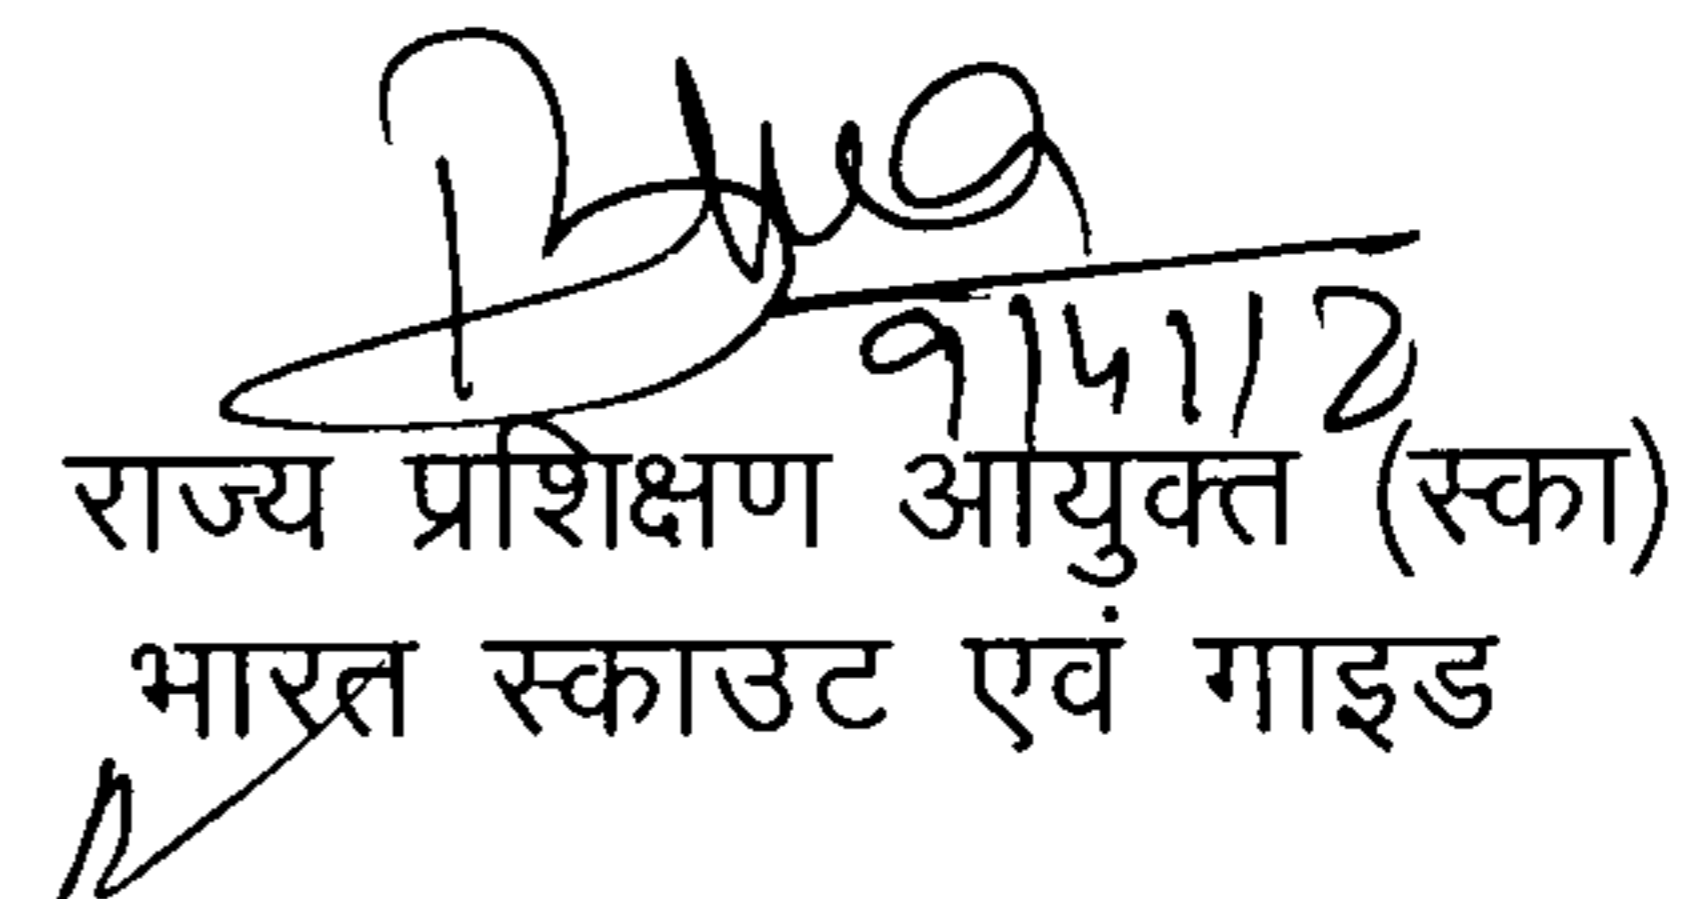 राज्य प्रशिक्षण आयुक्त (स्का)
भारत स्काउट एवं गाइड